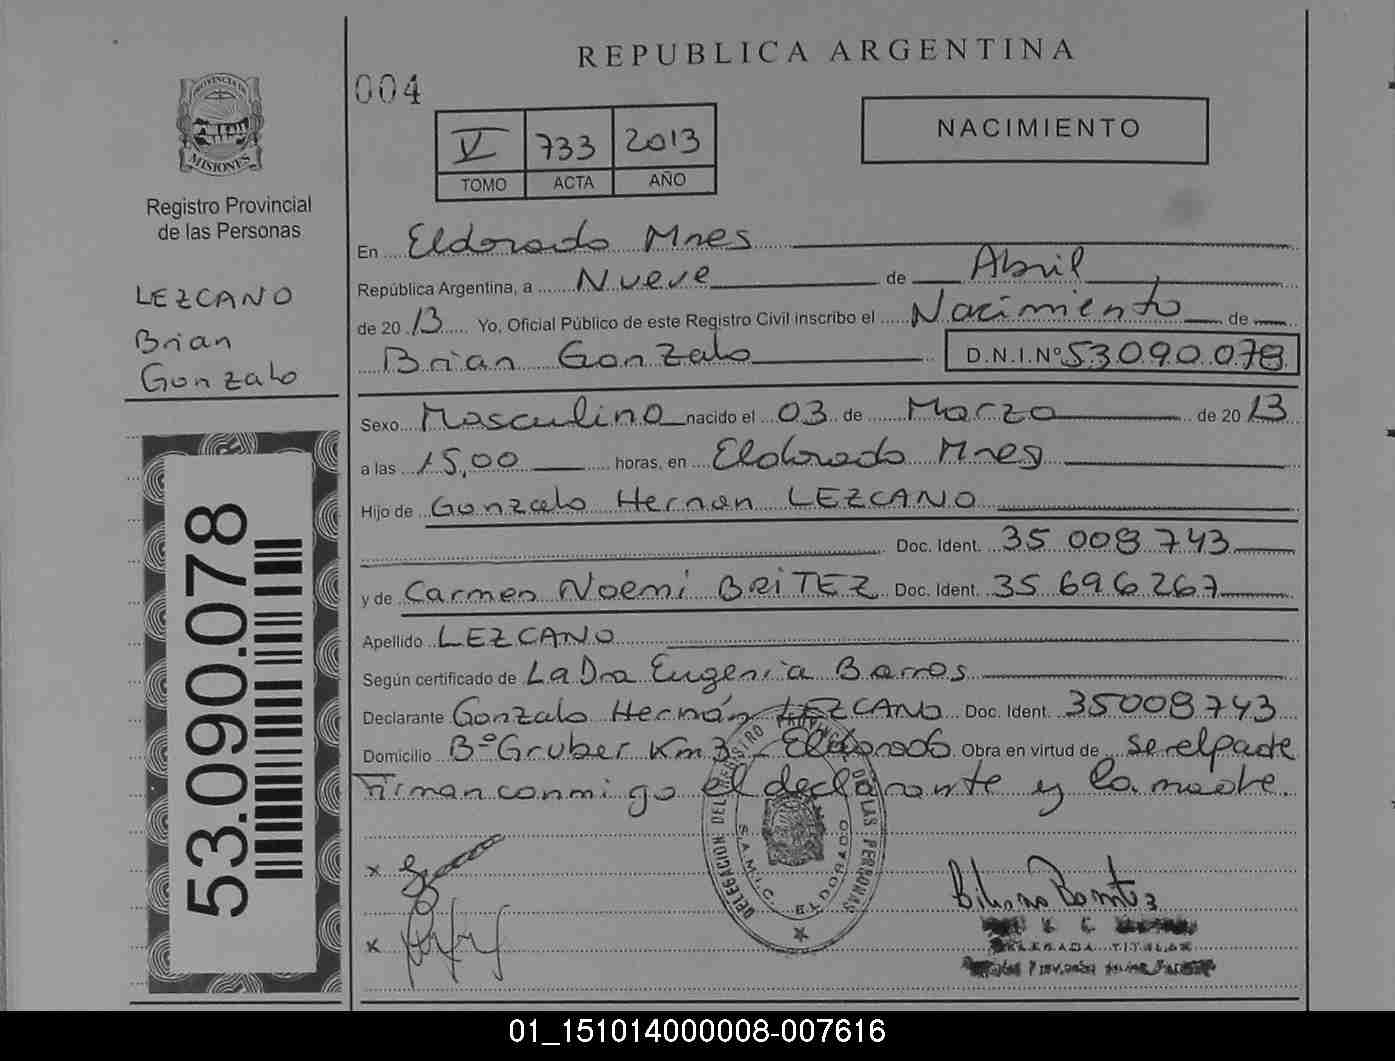 REPUBLICA ARGENTINA
004
PROVINCIA DE
MISIONES
Registro Provincial
de las Personas
LEZCANO
Brian
Gonzalo
53.090.078
V 733 2013
TOMO ACTA AÑO
NACIMIENTO
En Eldorado Mnes
República Argentina, a Nueve de Abril
de 20 13 Yo, Oficial Público de este Registro Civil inscribo el Nacimiento de
Brian Gonzalo D.N.I.Nº 53.090.078
Sexo Masculino nacido el 03 de Marzo de 20 13
a las 15,00 horas, en Eldorado Mnes
Hijo de Gonzalo Hernan LEZCANO
Doc. Ident. 35 008 743
y de Carmen Noemi BRITEZ Doc. Ident. 35 696 267
Apellido LEZCANO
Según certificado de La Dra Eugenia Barros
Declarante Gonzalo Hernán LEZCANO Doc. Ident. 35008743
Domicilio Bº Gruber Km 3 - Eldorado Obra en virtud de se el padre
Firman conmigo el declarante y la madre.
DELEGACION DEL REGISTRO PROVINCIAL DE LAS PERSONAS
S.A.M.I.C. ELDORADO
x
x
DELEGADA TITULAR
01_151014000008-007616